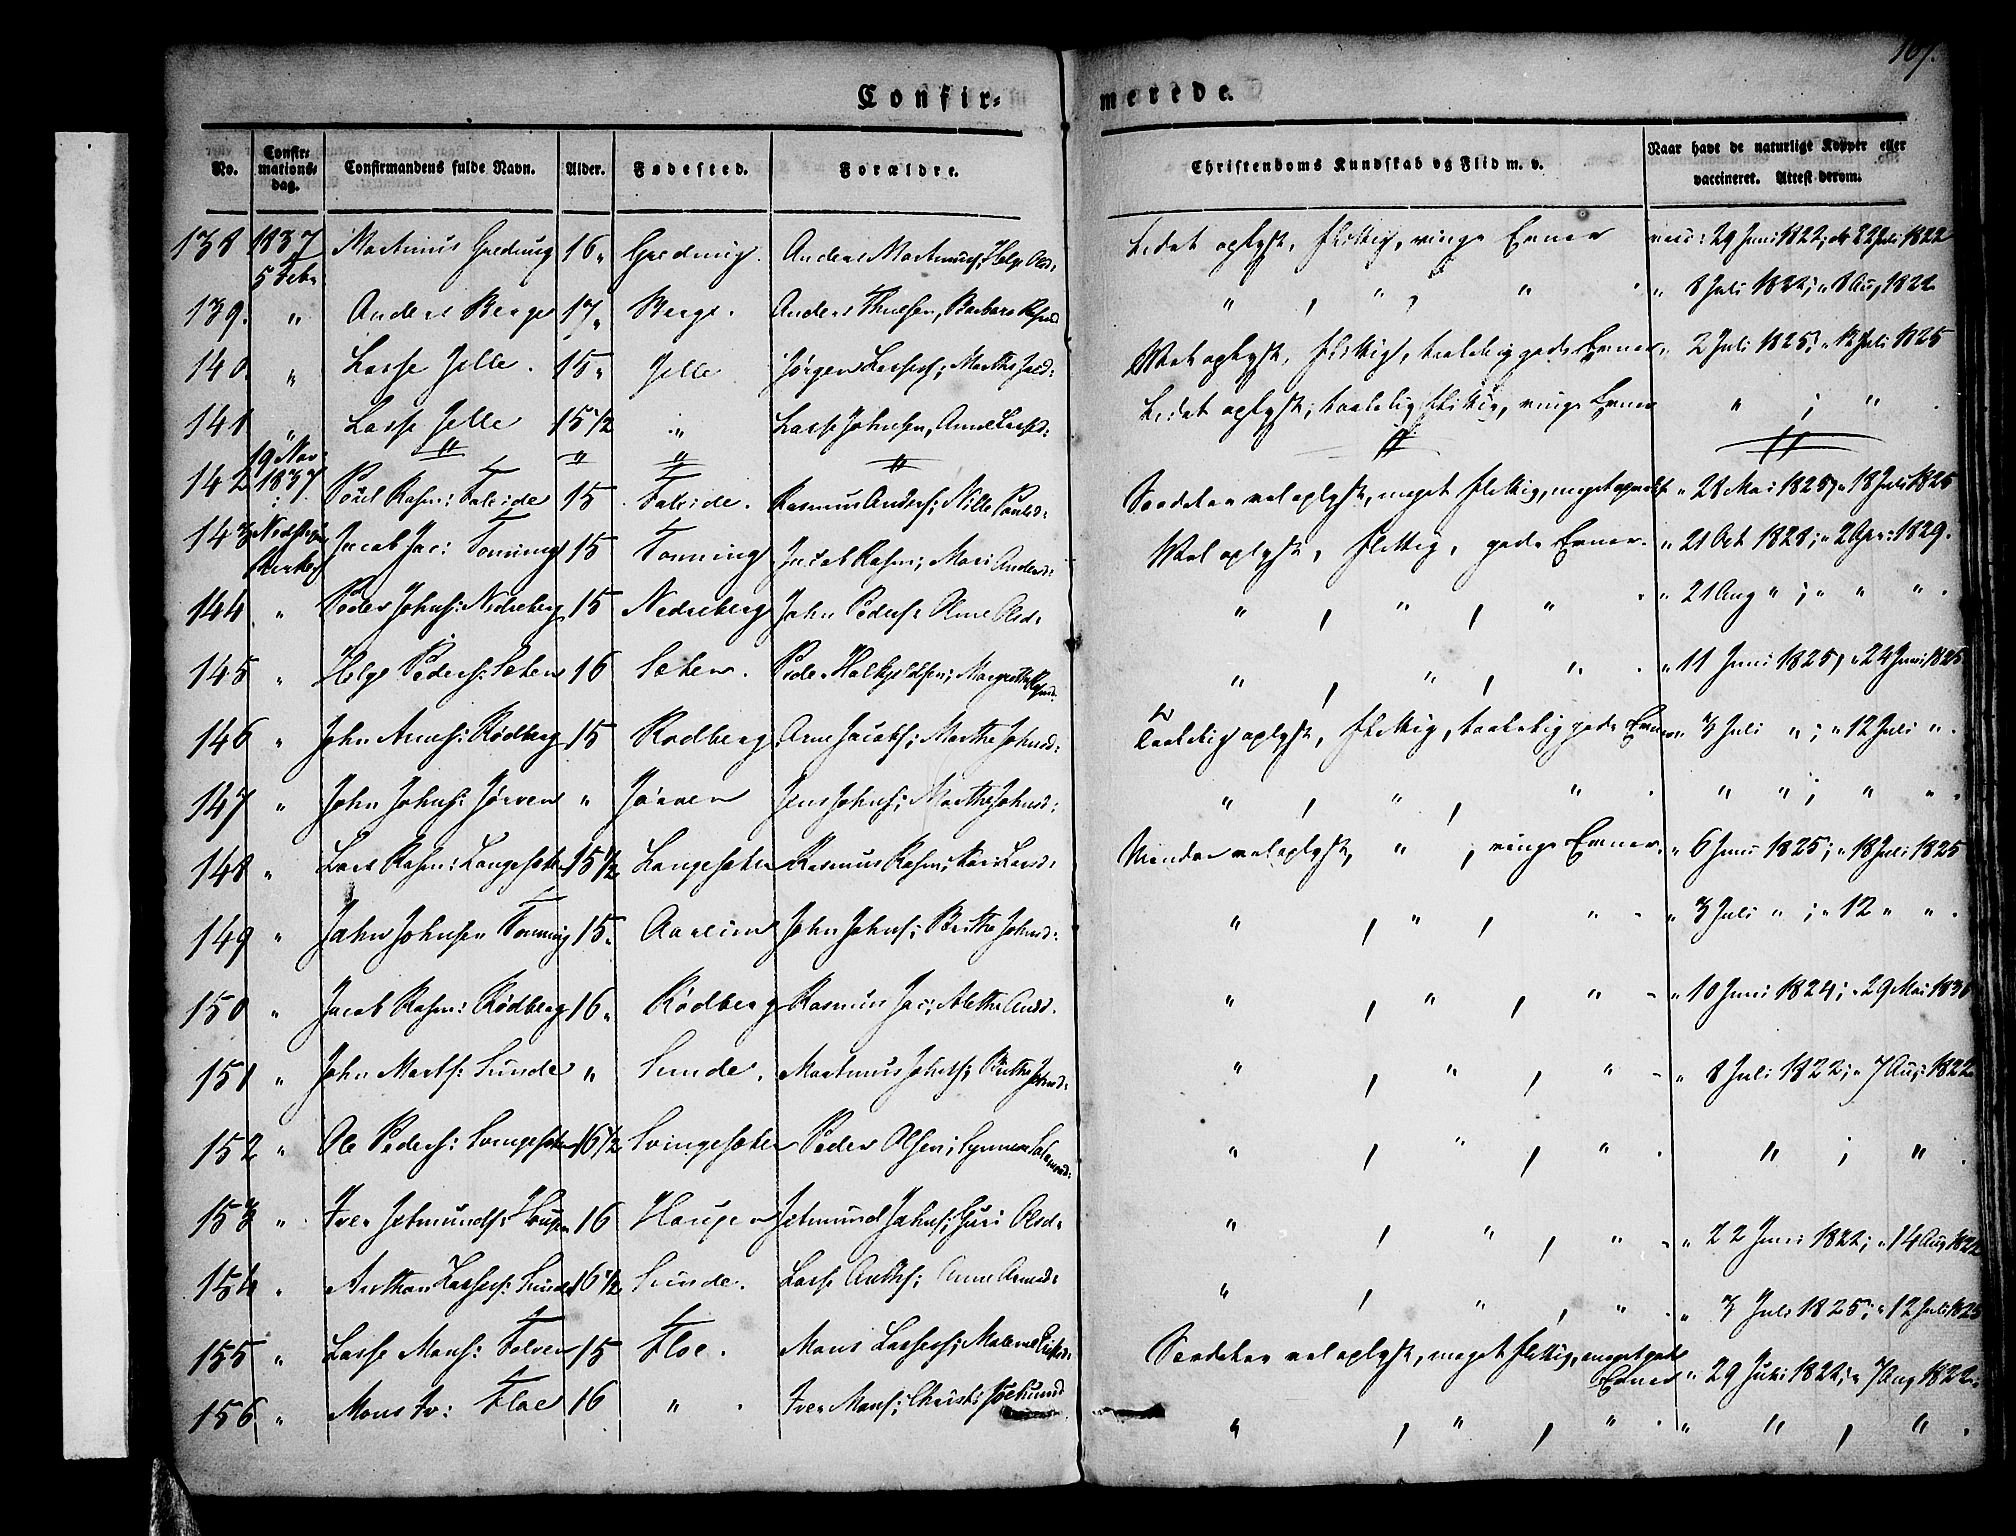 167.
Confir= merede.
No. Confir= mations= dag. Confirmandens fulde Navn. Alder. Fødested. Forældre. Christendoms Kundskab og Flid m. v. Naar havt de naturlige Kopper eller vaccineret. Attest derom.
138 1837 5 Febr Martinus Gredung 16 " Gredung. Anders Martinusf; Helge Olsd: Lidet oplyst, flittig, ringe Evner vacc: 29 Juni 1822; at 22 Juli 1822
139. " Anders Berge 17 " Berge. Anders Thuesen, Barbara " , " , " " 8 Juli 1822; " 8 Aug 1822
140. " Lasse Jelle. 15 " Jelle Jørgen Lassesf; Marthe Vel oplyst, flittig, taalelig gode Evner " 2 Juli 1825; " 12 Juli 1825
141 " Lasse Jelle 15 1/2 " Lasse Johnsen, Anne Lassd: Lidet oplyst; taalelig flittig, ringe Evner " ; " .
142 19 Nov: 1837 Poul Rasm: Faleide 15 Faleide. Rasmus Andersf; Nille Poulsd: Særdeles vel oplyst, meget flittig, meget gode " 28 Mai 1825; " 18 Juli 1825
143 Nedstryn Kirke Jacob Jac: Tonning 15 Tonning Jacob Rasm; Mari Andersd: Vel oplyst, flittig, gode Evner. " 21 Oct 1828; " 2 Apr: 1829.
144. " Peder Johnsf: Nedreberg 15 Nedreberg John Pedersf: Olsd: " , " , " . " 21 Aug " ; " " " .
145 " Helge Pedersf: Sæten 16 Sæten. Peder Halkjeldsen; Margrethe " , " , " . " 11 Juni 1825; " 24 Juni 1825
146 " John Arnesf: Rødberg 15 Rødberg Arne Jacobsf; Marthe Johnsd: Taalelig oplyst, flittig, taalelig gode Evner " 3 Juli " ; " 12 Juli " .
147 " John Johnsf: Jørven " Jørven Jens Johnsf; Marthe Johnsd: " , " , " . " " ; " " .
148 " Lars Rasm: Langesæter 15 1/2 Langesæter Rasmus Rasm; Kari Larsd: Mindre vel oplyst, " , ringe Evner. " 6 Juni 1825; " 18 Juli 1825
149 " John Johnsen Tonning 15 " John Johnsf; Birthe Johnsd: " , " , " . " 3 Juli " ; " 12 " " .
150 " Jacob Rasm: Rødberg 16 " Rødberg Rasmus Jac; Alethe Andsd. " , " , " - " 10 Juni 1824; " 29 Mai 1830
151 " John Martsf: Sunde " Sunde. Martinus Johnsf; Birthe Johnsd: " , " , " - " 8 Juli 1822; " 7 Aug: 1822
152 " Ole Pedersf: 16 1/2 Peder Olsen; " , " , " . " ; " .
153 " Iver Jetmundsf: Haugen 16 Haugen Jetmund Johnsf; Guri Olsd: " , " , " - " 22 Juni 1822; " 14 Aug 1822
154 " Lassesf: Sunde 16 1/2 Sunde. Lasse Andersf; Anne Arnesd: " , " , " . " 3 Juli 1825; " 12 Juli 1825
155 " Lasse Monsf: Folven 15 Floe. Mons Lassesf; Malene Særdeles vel oplyst, meget flittig, meget gode Evner " 29 Juli 1822; " 7 Aug 1822.
156 " Mons Iv: Floe 16 " . Iver Monsf; Christi " , " , " . " " , " .